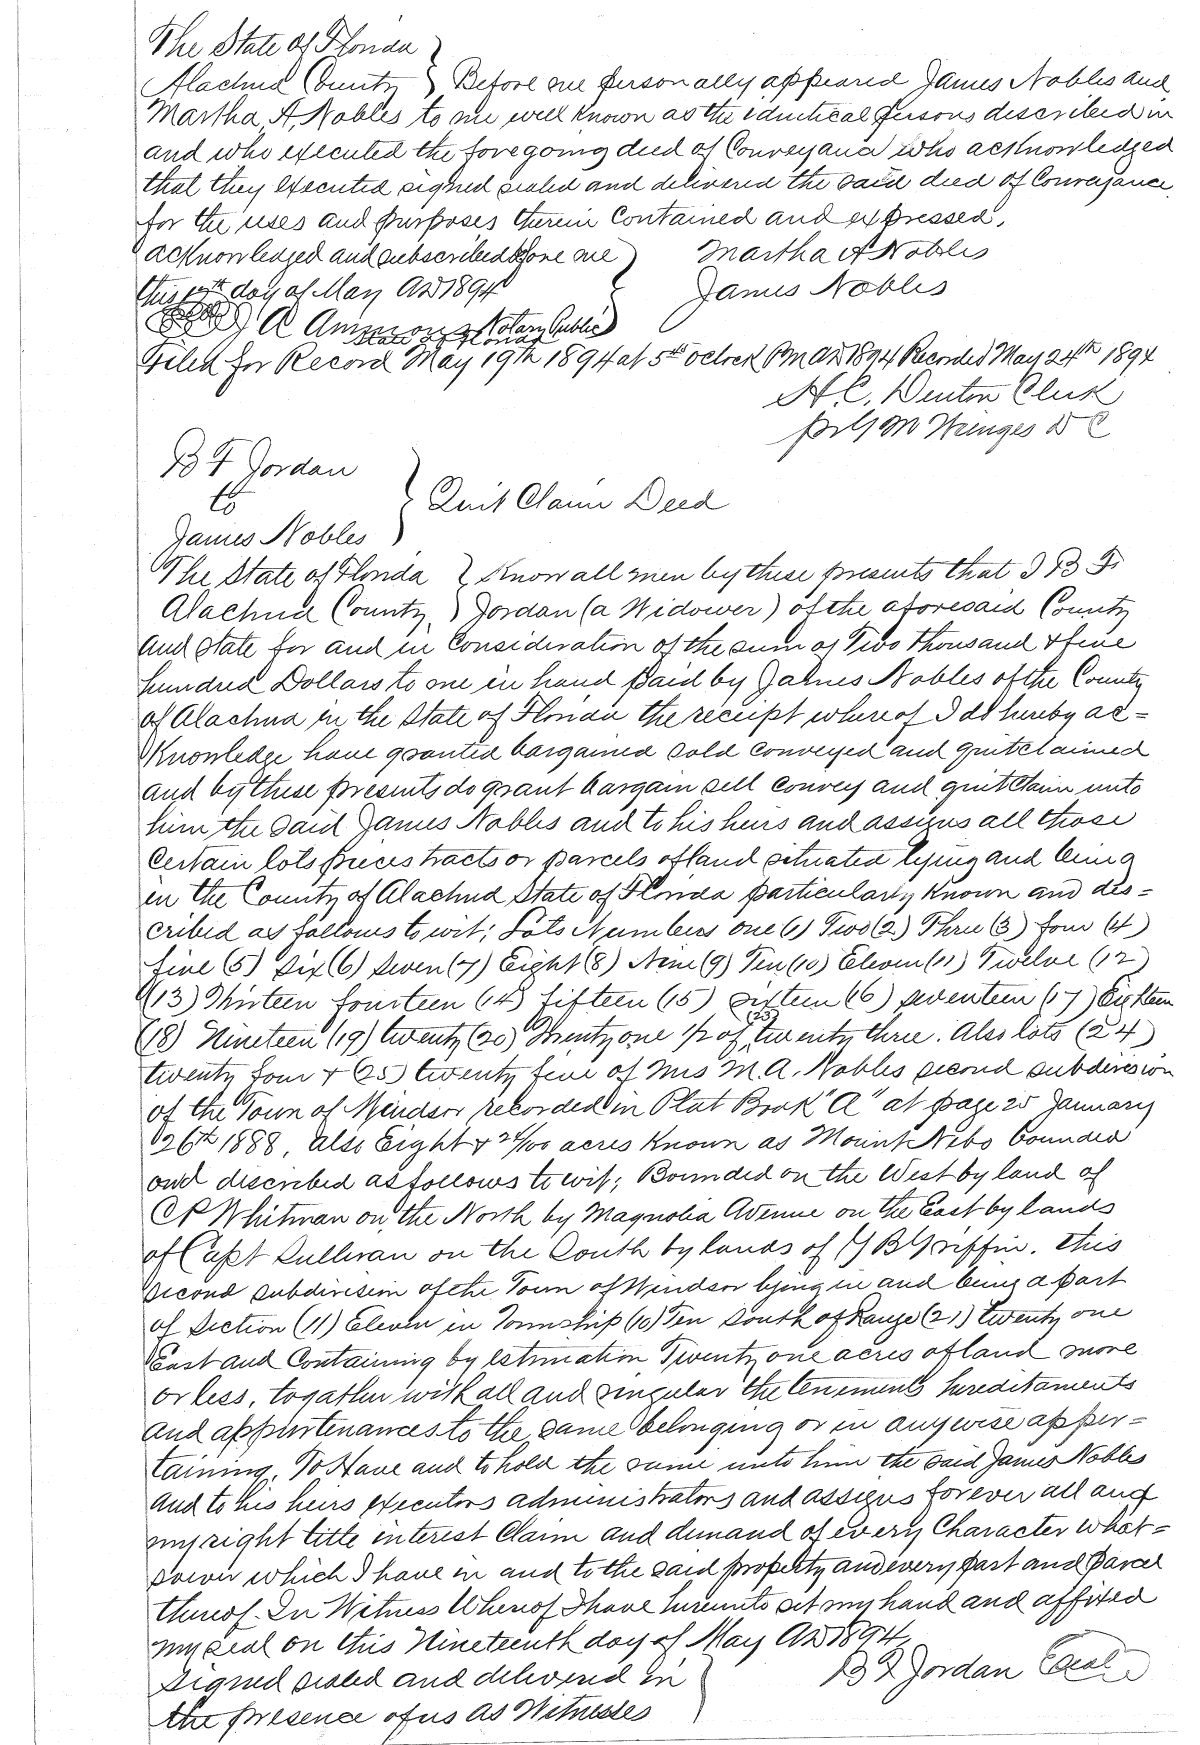 The State of Florida
Alachua County } Before me personally appeared James Nobles and
Martha A. Nobles to me well known as the identical persons described in
and who executed the foregoing deed of Conveyance who acknowledged
that they executed signed sealed and delivered the said deed of Conveyance
for the uses and purposes therein Contained and expressed.
acknowledged and subscribed before me } Martha A Nobles
this day of May AD 1894 James Nobles
A Ammons Notary Public
State of Florida
Filed for Record May 19th 1894 at 5th oclock PM AD 1894 Recorded May 24th 1894
H. C. Denton Clerk
pr G M Wringes D C
B F Jordan
to } Quit Claim Deed
James Nobles
The State of Florida } Know all men by these presents that I B F
Alachua County } Jordan (a Widower) of the aforesaid County
and state for and in Consideration of the sum of Two thousand & five
hundred Dollars to me in hand paid by James Nobles of the County
of Alachua in the State of Florida the receipt whereof I do hereby ac=
Knowledge have granted bargained sold conveyed and quitclaimed
and by these presents do grant bargain sell convey and quitClaim unto
him the said James Nobles and to his heirs and assigns all those
Certain lots pieces tracts or parcels of land situated lying and being
in the County of Alachua State of Florida particularly Known and des=
cribed as follows to wit; Lots Numbers one (1) Two (2) Three (3) four (4)
five (5) Six (6) Seven (7) Eight (8) Nine (9) Ten (10) Eleven (11) Twelve (12)
(13) Thirteen fourteen (14) fifteen (15) sixteen (16) seventeen (17) Eighteen
(18) Nineteen (19) twenty (20) Twenty one 1/2 of (23) twenty three. Also lots (24)
twenty four & (25) twenty five of Mrs M. A. Nobles second subdivision
of the Town of Windsor recorded in Plat Book "A" at page 25 January
26th 1888, also Eight & 24/100 acres Known as Mount Nebo bounded
and discribed as follows to wit; Bounded on the West by land of
C P Whitman on the North by Magnolia Avenue on the East by lands
of Capt Sullivan on the South by lands of J B Griffin. this
second subdivision of the Town of Windsor lying in and being a part
of Section (11) Eleven in Township (10) Ten South of Range (21) twenty one
East and Containing by estimation Twenty one acres of land more
or less, togather with all and singular the tenements hereditaments
and appurtenances to the same belonging or in anywise apper=
taining. To Have and to hold the same unto him the said James Nobles
and to his heirs executors administrators and assigns forever all and
my right title interest Claim and demand of every Character what=
soever which I have in and to the said property and every part and parcel
thereof. In Witness Whereof I have hereunto set my hand and affixed
my seal on this Nineteenth day of May AD 1894.
Signed sealed and delivered in } B F Jordan Seal
the presence of us as Witnesses